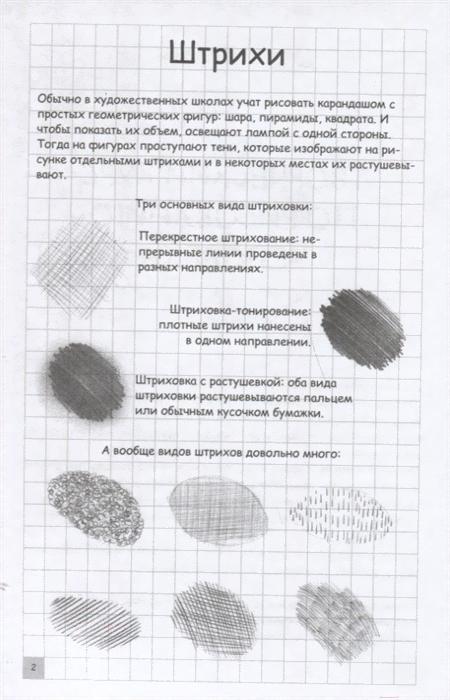 Штрихи
Обычно в художественных школах учат рисовать карандашом с
простых геометрических фигур: шара, пирамиды, квадрата. И
чтобы показать их объем, освещают лампой с одной стороны.
Тогда на фигурах проступают тени, которые изображают на ри-
сунке отдельными штрихами и в некоторых местах их растушевы-
вают.
Три основных вида штриховки:
Перекрестное штрихование: не-
прерывные линии проведены в
разных направлениях.
Штриховка-тонирование:
плотные штрихи нанесены
в одном направлении.
Штриховка с растушевкой: оба вида
штриховки растушевываются пальцем
или обычным кусочком бумажки.
А вообще видов штрихов довольно много:
2